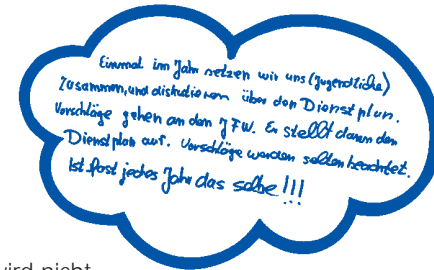 Einmal im Jahr setzen wir uns (Jugendliche)
zusammen, und diskutieren über den Dienstplan.
Vorschläge gehen an den JFW. Er stellt dann den
Dienstplan auf. Vorschläge werden selten beachtet.
Ist fast jedes Jahr das selbe !!!
wird nicht